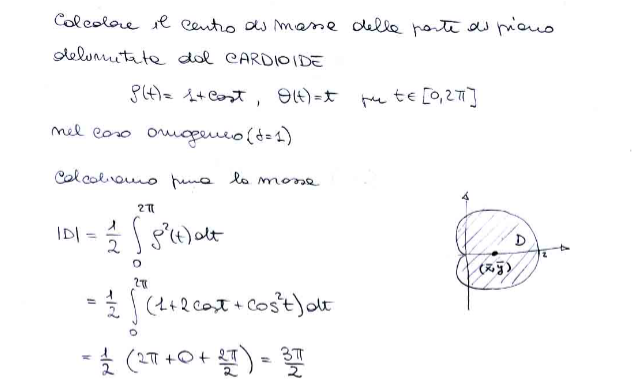 Calcolare il centro di massa della parte di piano
delimitata dal CARDIOIDE
ρ(t) = 1+cos t , θ(t) = t per t ∈ [0,2π]
nel caso omogeneo (d=1)
Calcoliamo prima la massa
|D| = 1/2 ∫₀^{2π} ρ²(t) dt
= 1/2 ∫₀^{2π} (1+2cos t + cos²t) dt
= 1/2 (2π + 0 + 2π/2) = 3π/2
D
2
(x̄,ȳ)